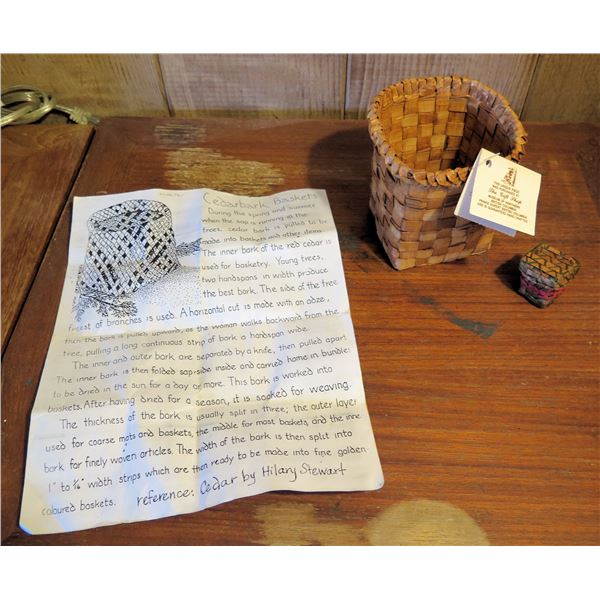 Cedarbark Baskets
During the spring and summer
when the sap is running in the
trees, cedar bark is pulled to be
made into baskets and other items
The inner bark of the red cedar is
used for basketry. Young trees,
two handspans in width produce
the best bark. The side of the tree
fewest of branches is used. A horizontal cut is made with an adze,
then the bark is pulled upward, as the woman walks backward from the
tree, pulling a long continuous strip of bark a handspan wide.
The inner and outer bark are separated by a knife, then pulled apart
The inner bark is then folded sap-side inside and carried home in bundle:
to be dried in the sun for a day or more. This bark is worked into
baskets. After having dried for a season, it is soaked for weaving.
The thickness of the bark is usually split in three; the outer layer
used for coarse mats and baskets, the middle for most baskets, and the inne
bark for finely woven articles. The width of the bark is then split into
1" to ⅛" width strips which are then ready to be made into fine golden-
coloured baskets. reference: Cedar by Hilary Stewart
The Gift Shop